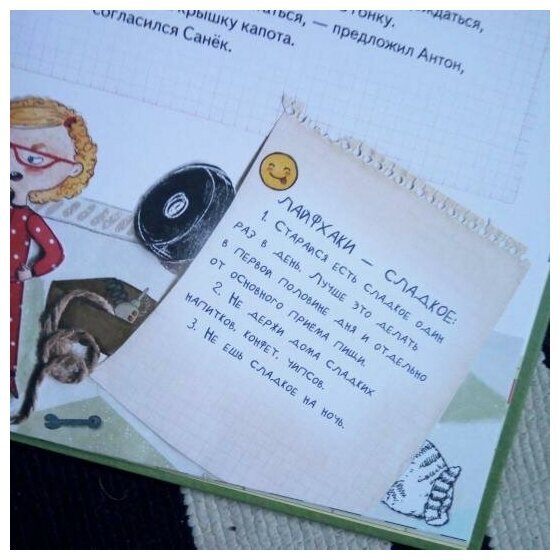 крышку капота.
— предложил Антон,
согласился Санёк.
ЛАЙФХАКИ — СЛАДКОЕ:
1. СТАРАЙСЯ ЕСТЬ СЛАДКОЕ ОДИН
РАЗ В ДЕНЬ. ЛУЧШЕ ЭТО ДЕЛАТЬ
В ПЕРВОЙ ПОЛОВИНЕ ДНЯ И ОТДЕЛЬНО
ОТ ОСНОВНОГО ПРИЁМА ПИЩИ.
2. НЕ ДЕРЖИ ДОМА СЛАДКИХ
НАПИТКОВ, КОНФЕТ, ЧИПСОВ.
3. НЕ ЕШЬ СЛАДКОЕ НА НОЧЬ.